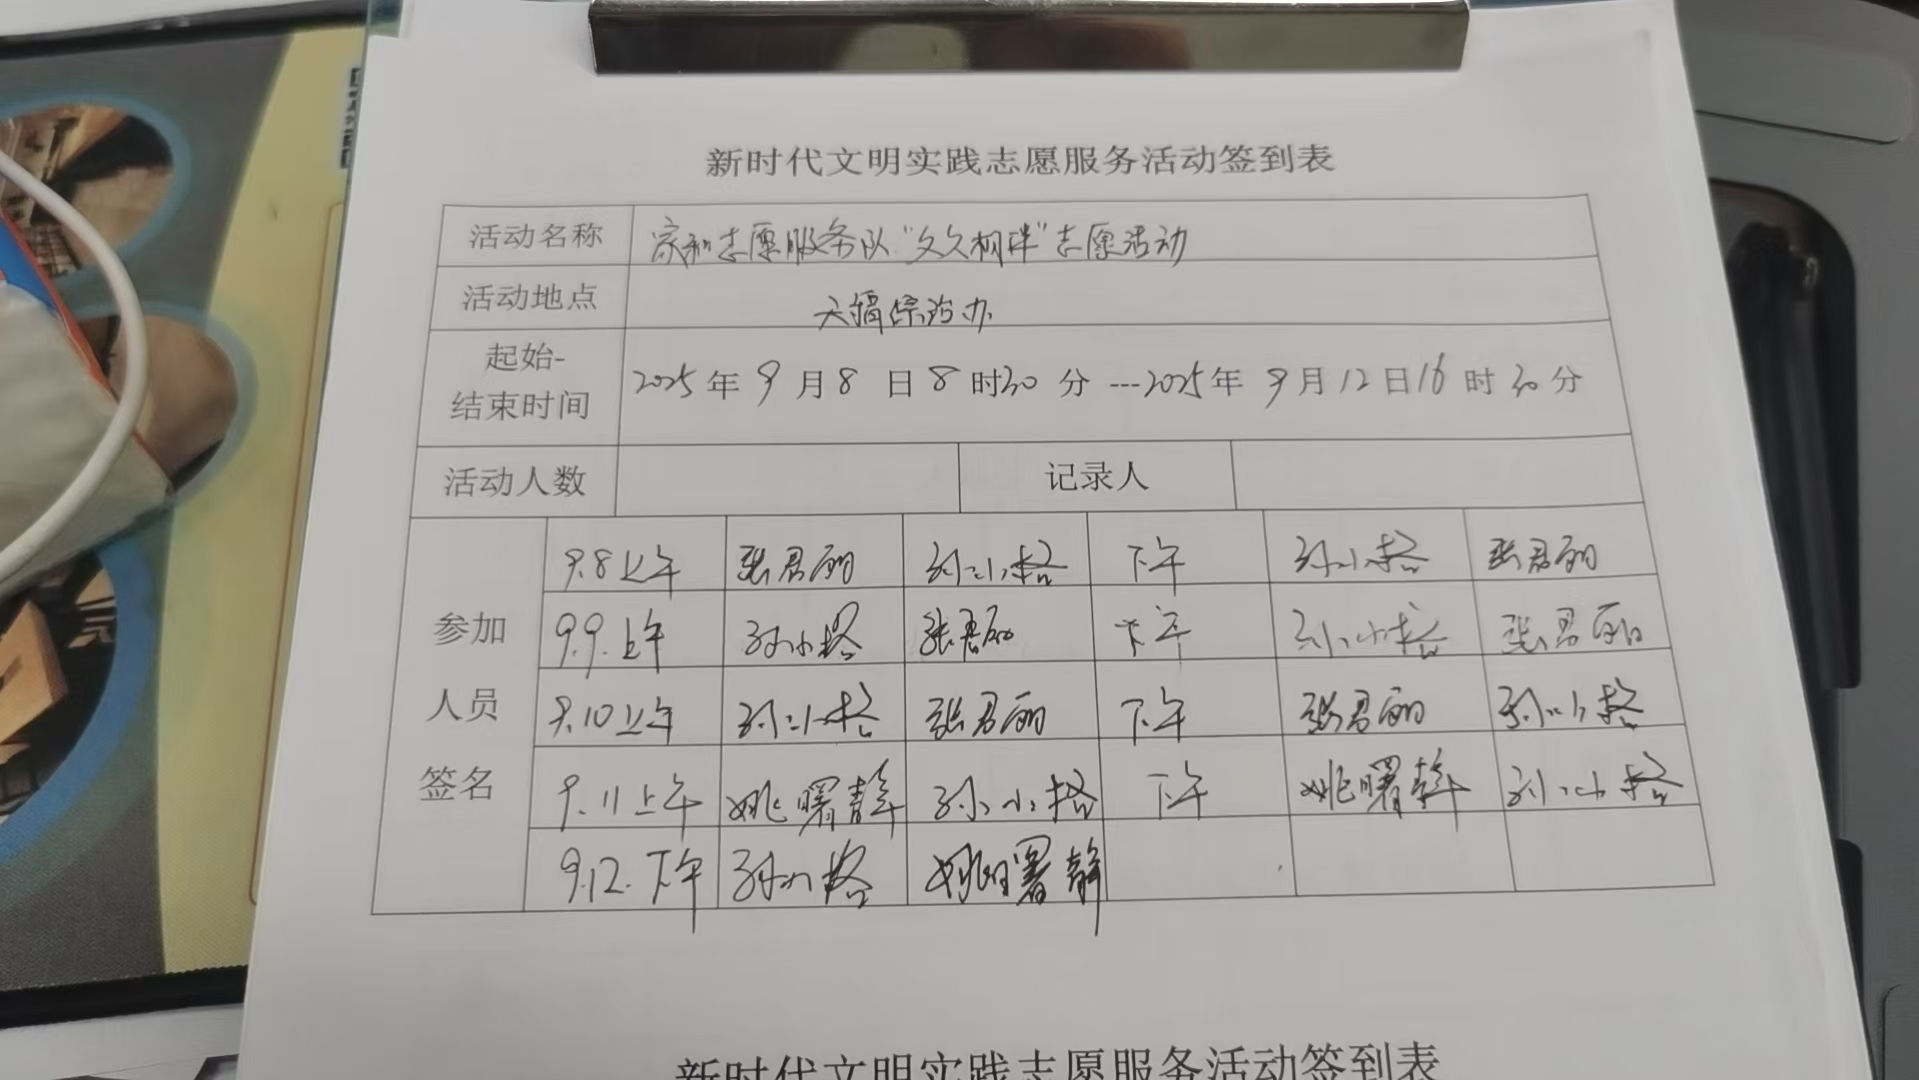 新时代文明实践志愿服务活动签到表
活动名称 家和志愿服务队"文久相伴"志愿活动
活动地点 天镉综治办
起始-
结束时间
2025年9月8日8时30分---2025年9月12日16时30分
活动人数 记录人
参加
人员
签名
9.8上午 张君丽 孙小格 下午 孙小格 张君丽
9.9.上午 孙小格 张君丽 下午 孙小格 张君丽
9.10上午 孙小格 张君丽 下午 张君丽 孙小格
9.11上午 姚曙静 孙小格 下午 姚曙静 孙小格
9.12.下午 孙小格 姚曙静
新时代文明实践志愿服务活动签到表